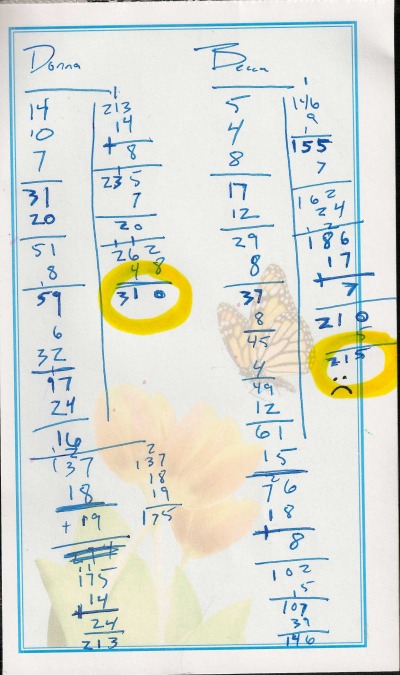 Donna
14
10
7
31
20
51
8
59
6
32
97
24
16
137
18
+ 19
175
14
24
213
213
14
+ 8
235
7
20
262
48
310
137
18
19
175
Becca
5
4
8
17
12
29
8
37
8
45
4
49
12
61
15
76
18
+ 8
102
5
107
39
146
146
9
155
7
162
24
186
17
+ 7
210
5
215